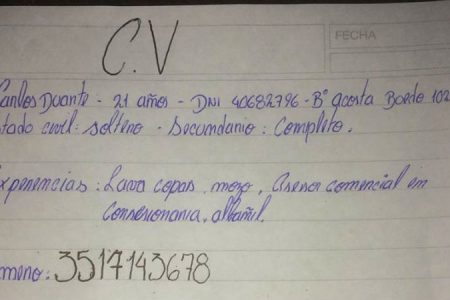 C.V
FECHA
Carlos Duarte - 21 años - DNI 40682796 - B° Acosta Boedo 102
stado civil: soltero - Secundario: Completo.
xperiencias: Lava copas, mozo, Asesor comercial en
Consesionaria, albañil.
mero: 3517143678